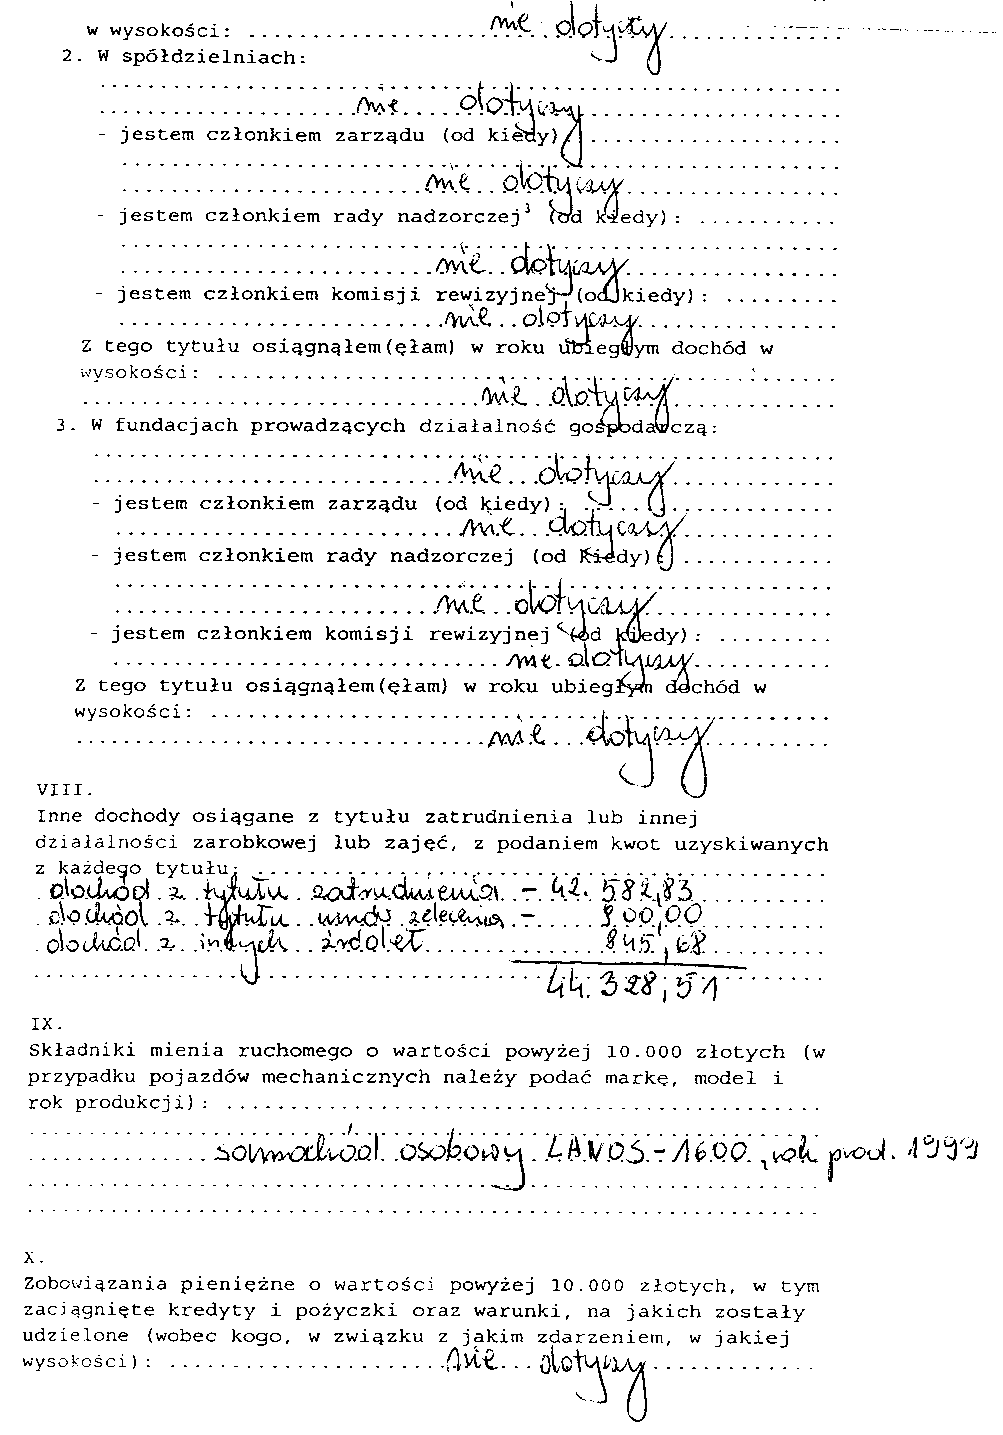 w wysokości: ....................nie dotyczy..................
2. W spółdzielniach:
..............................................................
......................nie dotyczy.............................
- jestem członkiem zarządu (od kiedy) .....................
..............................................................
.........................nie dotyczy.................
- jestem członkiem rady nadzorczej³ (od kiedy): ............
..............................................................
..........................nie dotyczy.................
- jestem członkiem komisji rewizyjnej (od kiedy): ..........
...........................nie dotyczy.................
Z tego tytułu osiągnąłem(ęłam) w roku ubiegłym dochód w
wysokości: ...................................................
.................................nie dotyczy..............
3. W fundacjach prowadzących działalność gospodarczą:
..............................................................
..............................nie dotyczy..............
- jestem członkiem zarządu (od kiedy): .....................
.............................nie dotyczy.............
- jestem członkiem rady nadzorczej (od kiedy) .............
..............................................................
...........................nie dotyczy...............
- jestem członkiem komisji rewizyjnej (od kiedy): ..........
................................nie dotyczy............
Z tego tytułu osiągnąłem(ęłam) w roku ubiegłym dochód w
wysokości: ...................................................
..................................nie dotyczy..........
VIII.
Inne dochody osiągane z tytułu zatrudnienia lub innej
działalności zarobkowej lub zajęć, z podaniem kwot uzyskiwanych
z każdego tytułu: ............................................
dochód z tytułu zatrudnienia - 42.582,83
dochód z tytułu umów zlecenia - 900,00
dochód z innych źródeł 845,68
44.328,51
IX.
Składniki mienia ruchomego o wartości powyżej 10.000 złotych (w
przypadku pojazdów mechanicznych należy podać markę, model i
rok produkcji): ..............................................
..............................................................
...............samochód osobowy LANOS - 1600, rok prod. 1999
..............................................................
..............................................................
X.
Zobowiązania pieniężne o wartości powyżej 10.000 złotych, w tym
zaciągnięte kredyty i pożyczki oraz warunki, na jakich zostały
udzielone (wobec kogo, w związku z jakim zdarzeniem, w jakiej
wysokości): .......................nie dotyczy..............